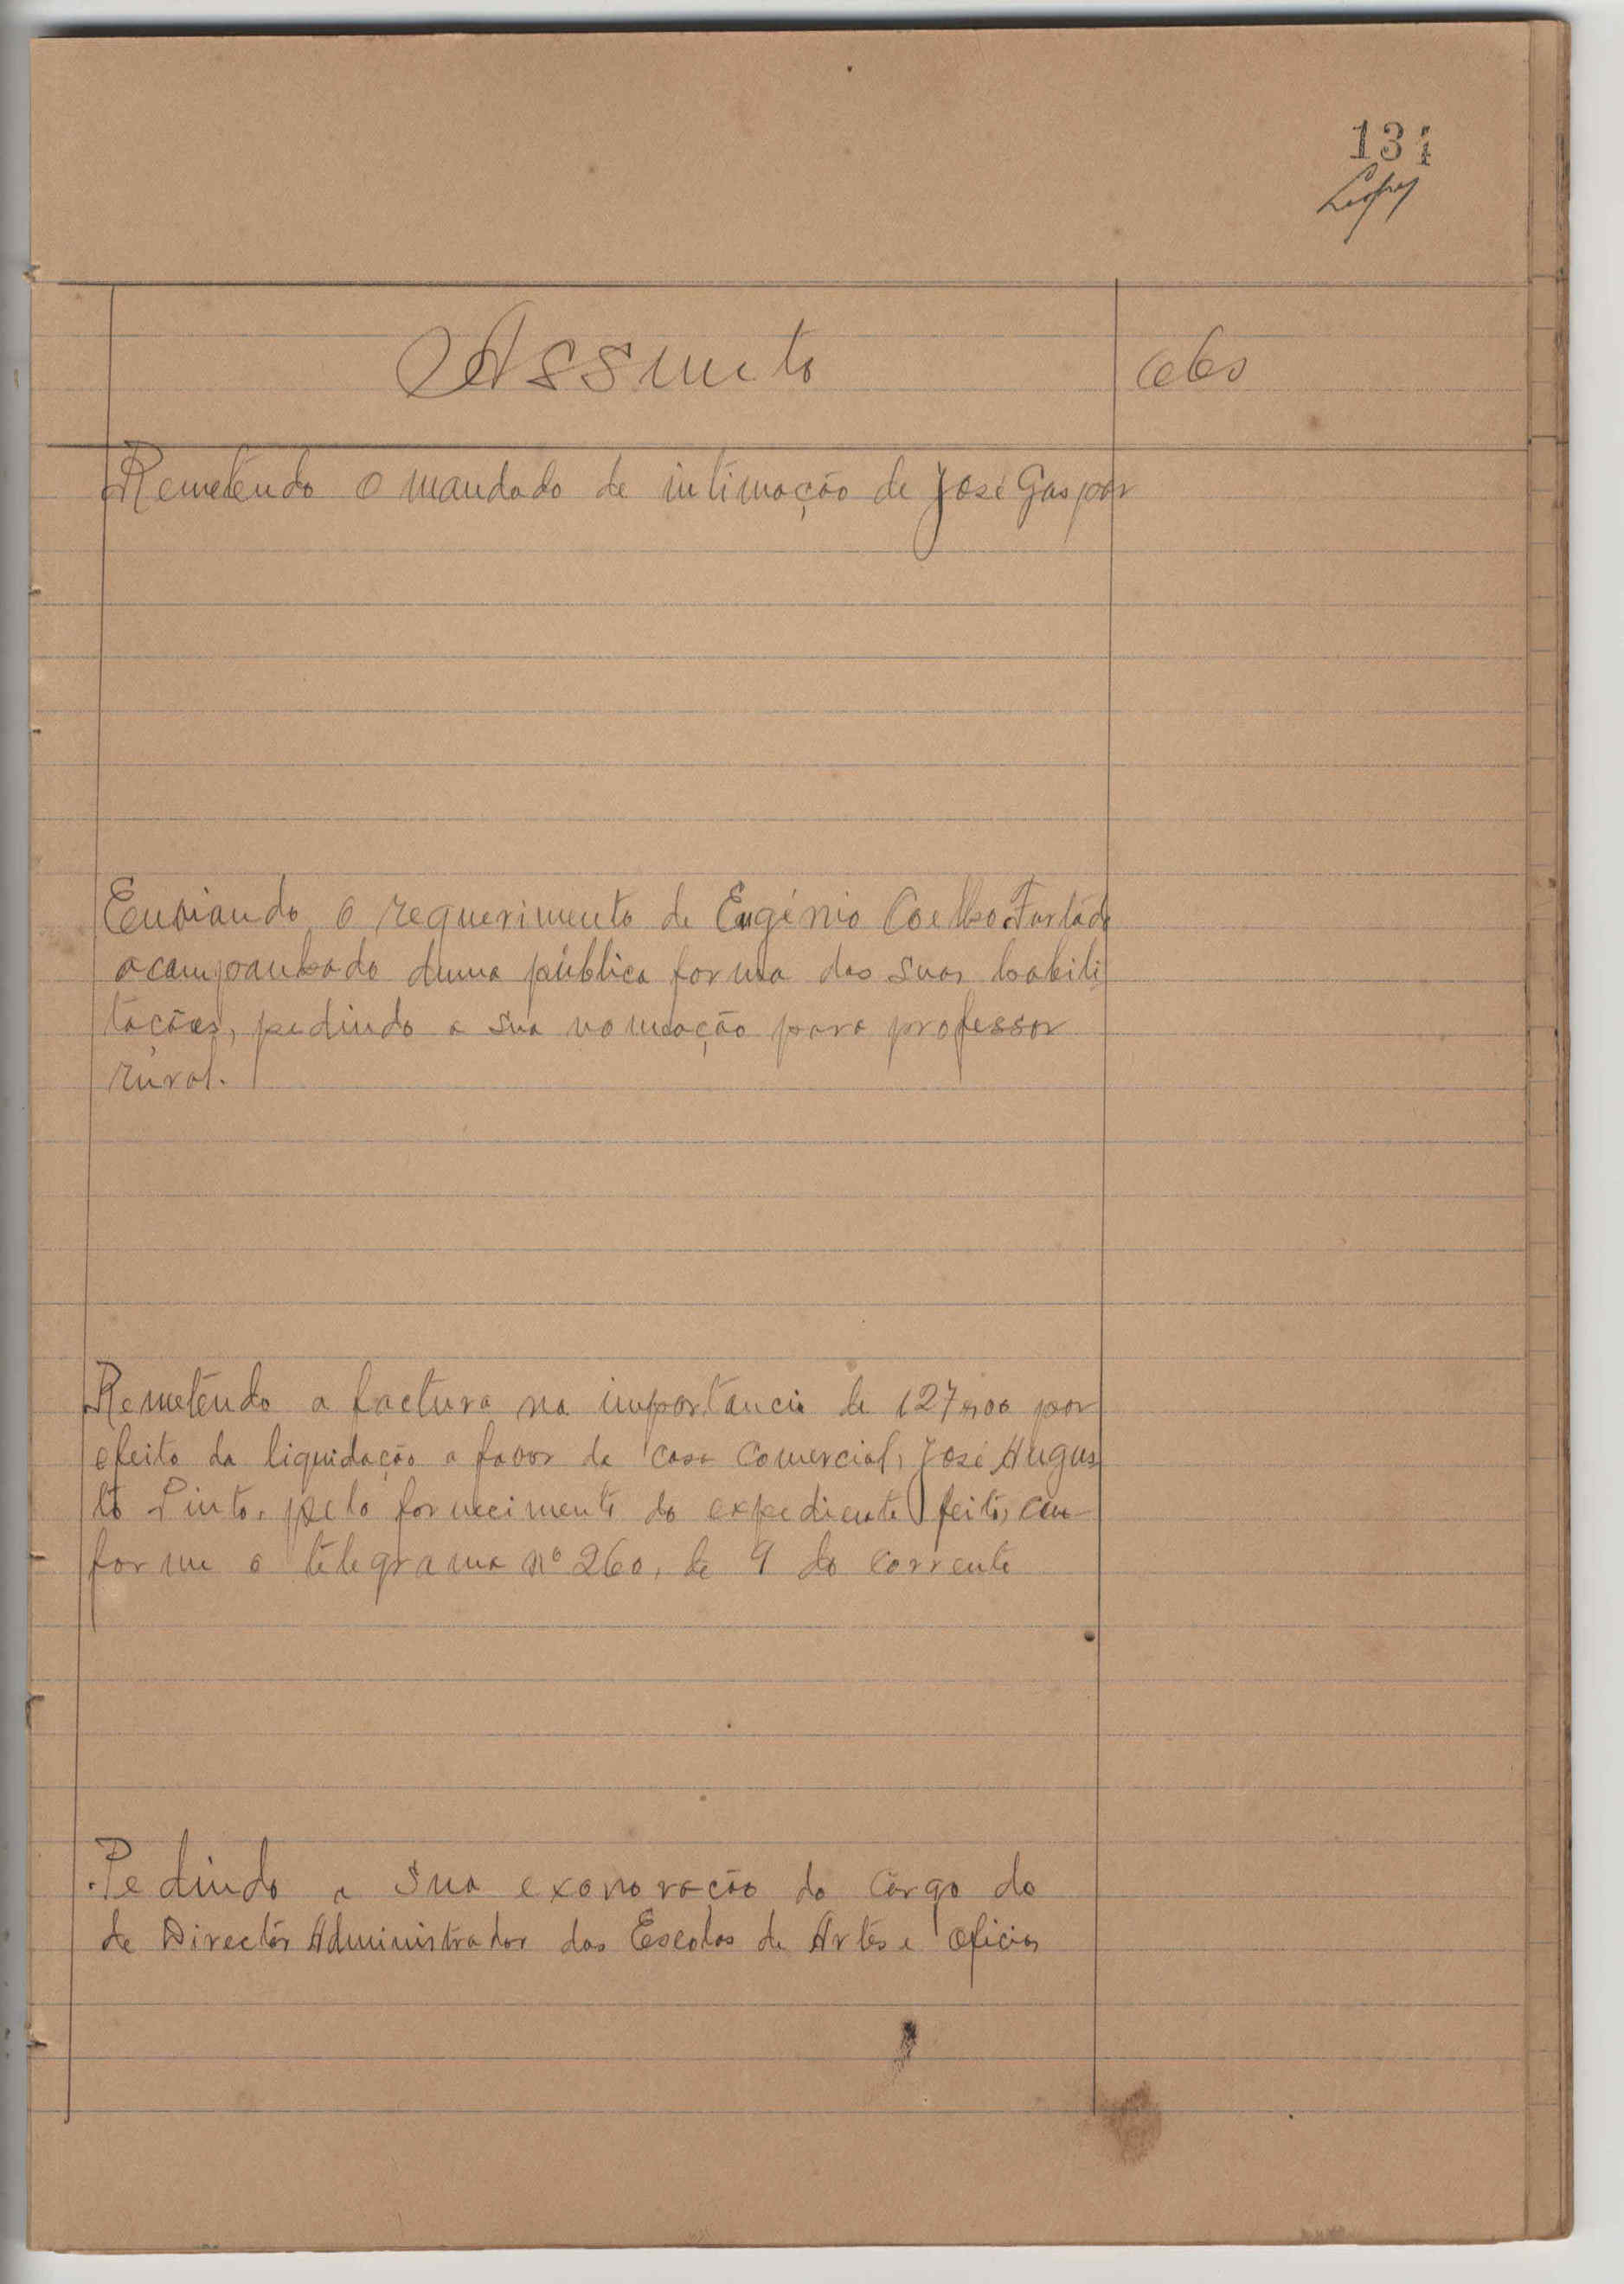 134
Lopes
Assunto
Obs
Remetendo o mandado de intimação de José Gaspar
Enviando o requerimento de Eugénio Coelho Furtado
acompanhado duma pública forma das suas habili
tações, pedindo a sua nomeação para professor
rúral.
Remetendo a factura na importancia de 127,00 por
efeito da liquidação a favor da casa Comercial, José Augus
to Pinto, pelo fornecimento do expediente feito, con
forme o telegrama nº 260, de 9 do corrente
Pedindo a sua exonoração do cargo do
de Director Administrador das Escolas de Artes e Oficios